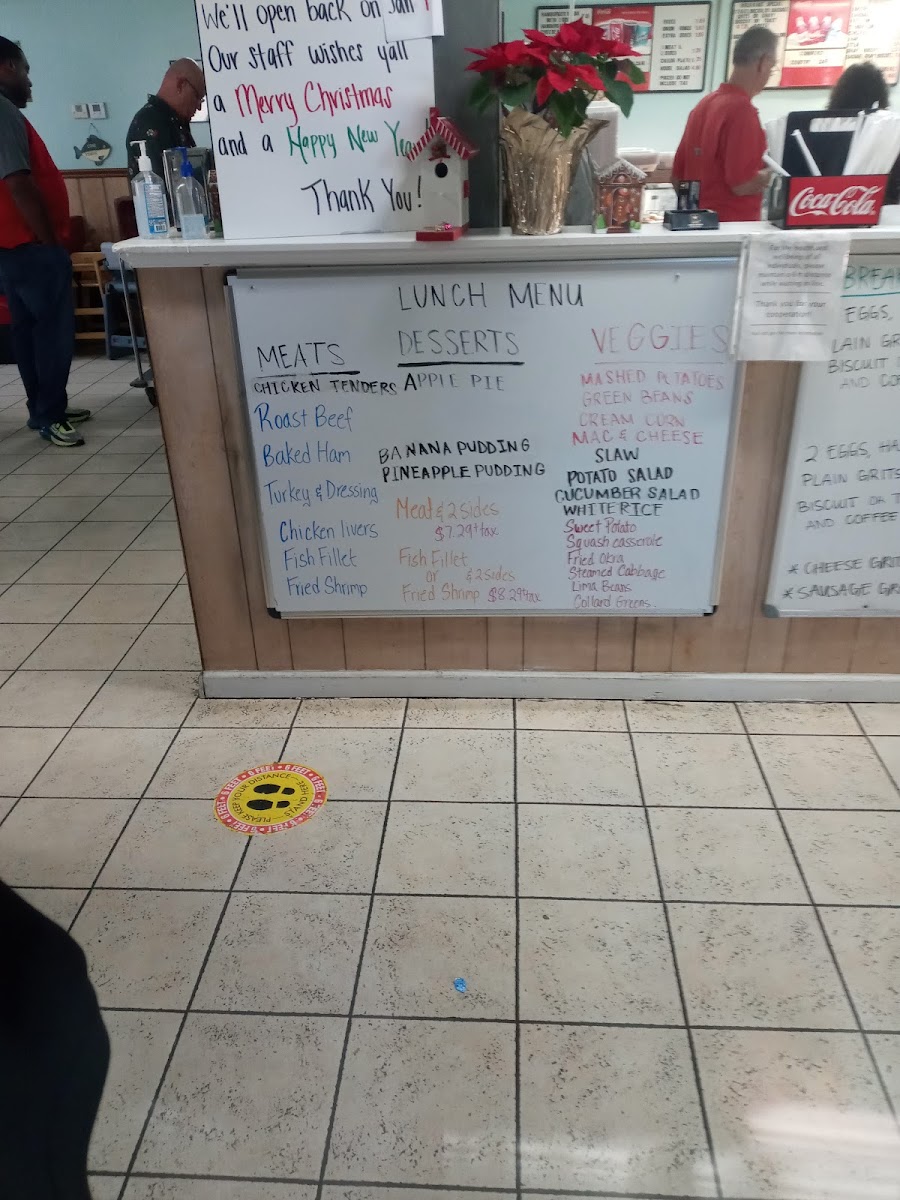 We'll open back on Jan
Our staff wishes yall
a Merry Christmas
and a Happy New Yea
Thank You!
Coca-Cola
LUNCH MENU
MEATS
CHICKEN TENDERS
Roast Beef
Baked Ham
Turkey & Dressing
Chicken livers
Fish Fillet
Fried Shrimp
DESSERTS
APPLE PIE
BANANA PUDDING
PINEAPPLE PUDDING
Meat & 2 sides
$7.29+tax
Fish Fillet
or & 2 sides
Fried Shrimp $8.29+tax
VEGGIES
MASHED POTATOES
GREEN BEANS
CREAM CORN
MAC & CHEESE
SLAW
POTATO SALAD
CUCUMBER SALAD
WHITE RICE
Sweet Potato
Squash casserole
Fried Okra
Steamed Cabbage
Lima Beans
Collard Greens.
For the health and
Thank you for your
BREA
EGGS,
LAIN GR
BISCUIT
AND CO
2 EGGS, HA
PLAIN GRITS
BISCUIT OR T
AND COFFEE
* CHEESE GRIT
* SAUSAGE GR
6 FEET
PLEASE KEEP YOUR DISTANCE
STAND HERE